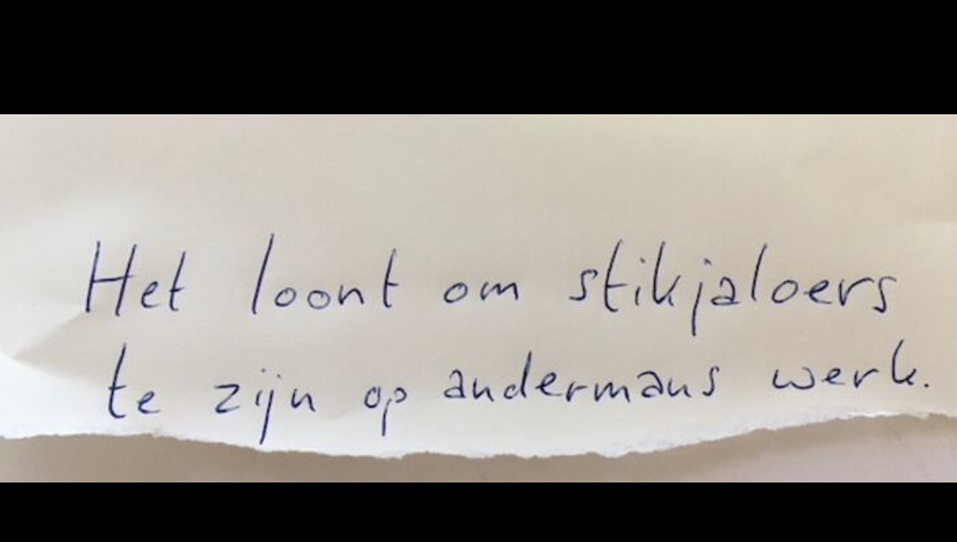 Het loont om stikjaloers
te zijn op andermans werk.